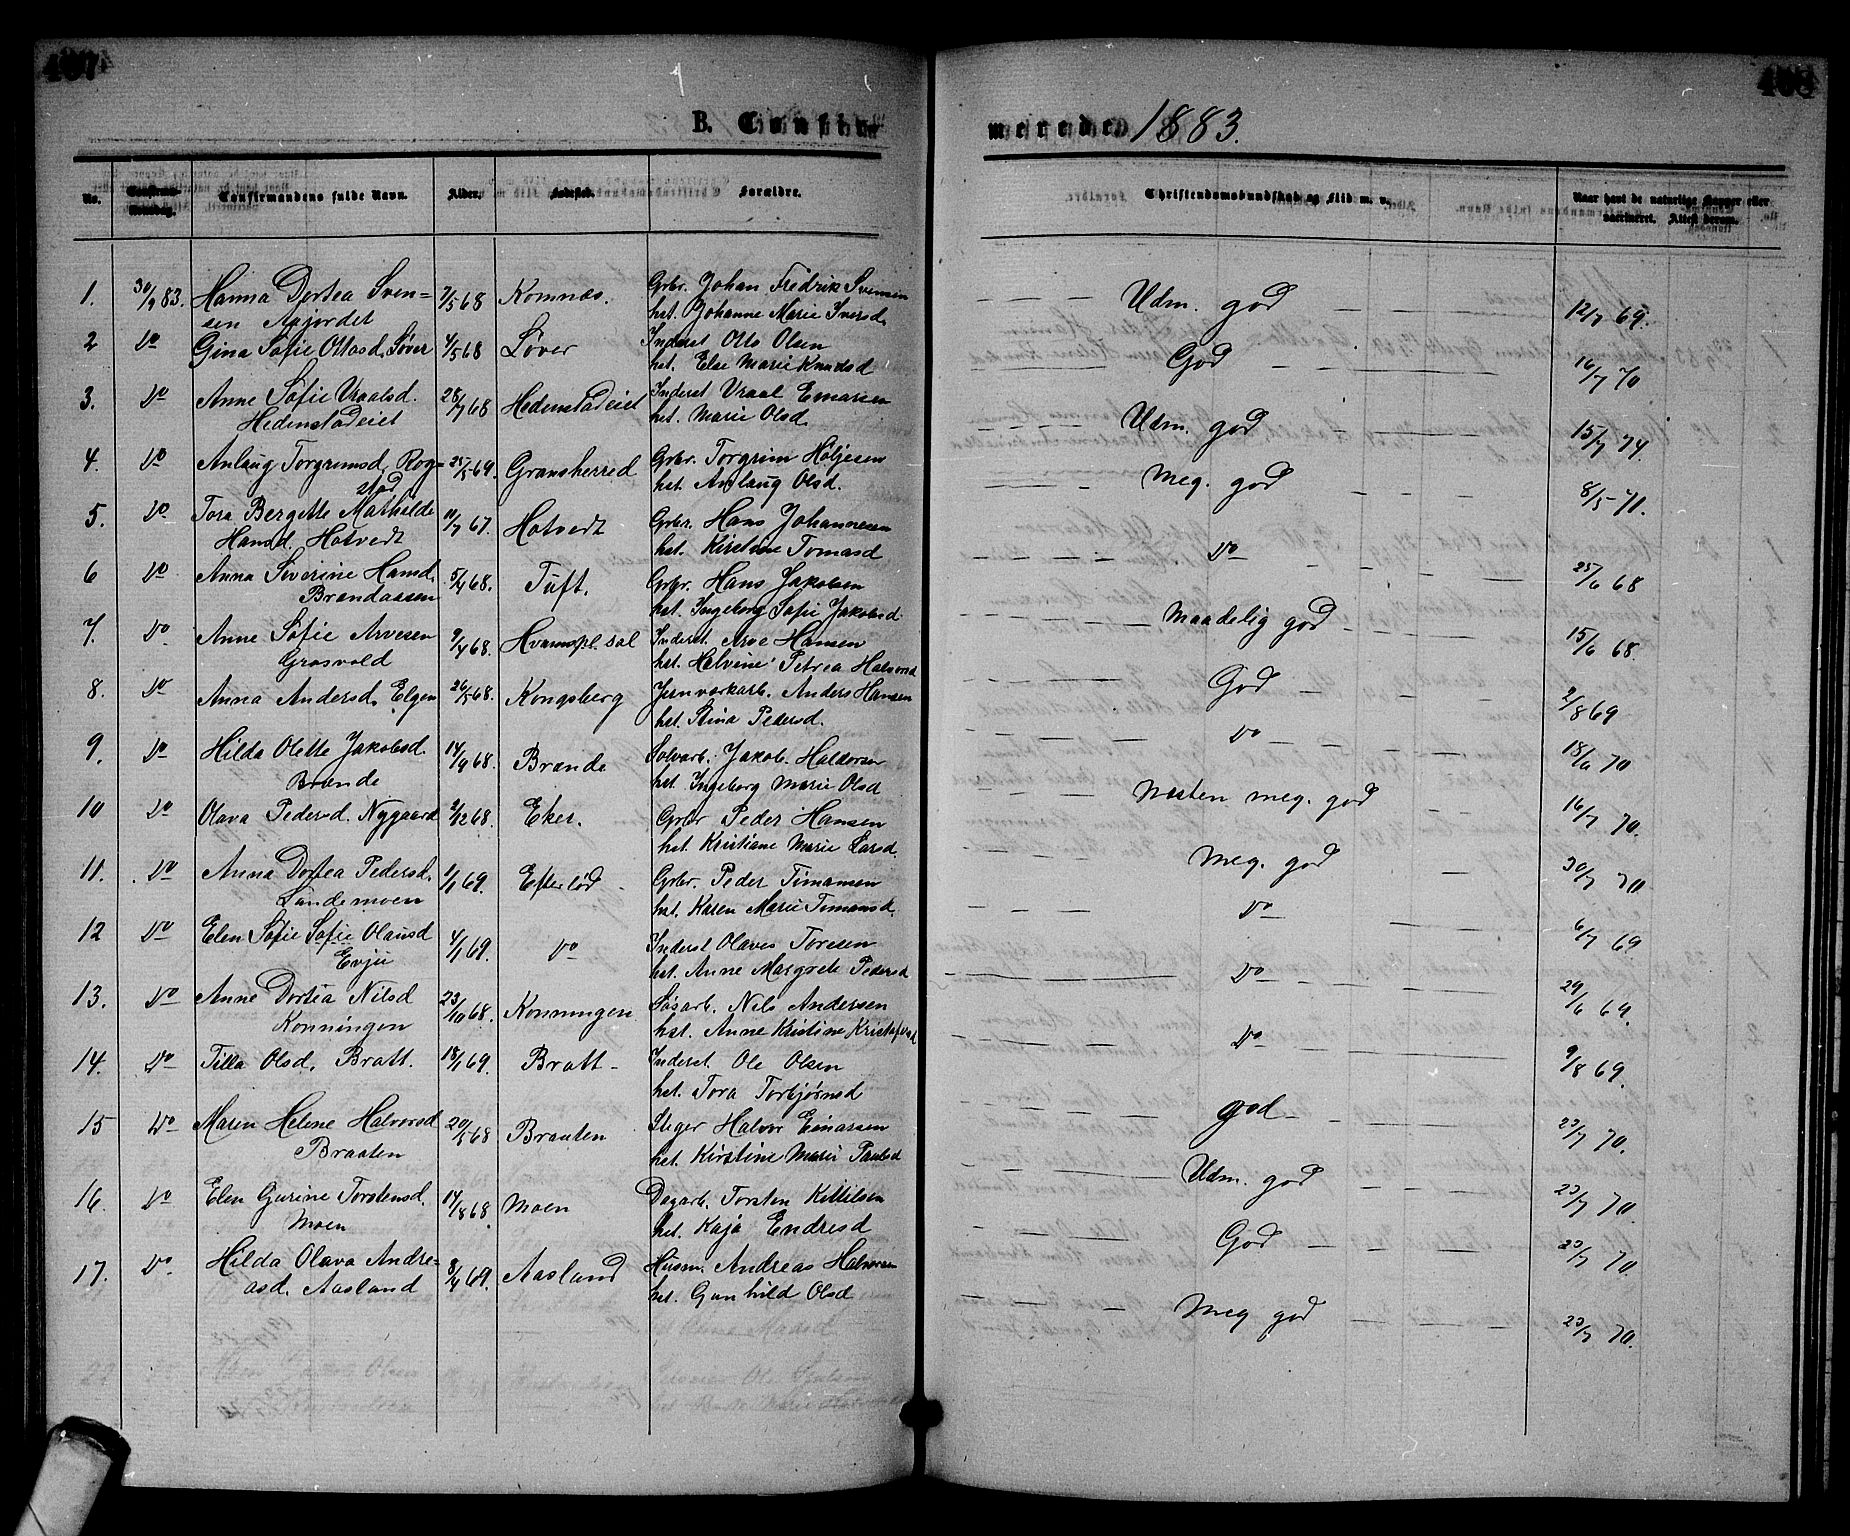 407
408
B. Confir
merede 1883.
No.
Confirmationsdag.
Confirmandens fulde Navn.
Alder.
Fødested.
Forældre.
Christendomskundskab og Flid m. v.
Naar havt de naturlige Kopper eller
vaccineret. Attest derom.
1. 30/9 83. Hanna Dortea Sven= 7/5 68 Komnæs. Gbr. Johan Fredrik Svensen Udm. god 12/7 69.
sen Aajordet hst. Johanne Marie Iversd.
2 Do Gina Sofie Ottosd. Løver 4/5 68 Løver Inderst Otto Olsen God 16/7 70
hst. Else Marie Knudsd
3. Do Anne Sofie Vraalsd. 28/7 68 Hedenstadeiet Inderst Vraal Emarsen Udm. god 15/7 74.
Hedenstadeiet hst. Marie Olsd.
4. Do Anlaug Torgrimsd. Rog= 25/5 69. Gransherred Gbr. Torgrim Høljesen Meg. god 8/5 71.
stad hst. Anlaug Olsd.
5. Do Tora Bergette Mathilde 11/7 67. Hotvedt Gbr. Hans Johannesen Do 25/6 68
Hansd. Hotvedt hst. Kirstine Tomasd
6 Do Anna Severine Hansd. 5/4 68. Tuft. Gbr. Hans Jakobsen Maadelig god 15/6 68.
Brændaasen hst. Ingeborg Sofie Jakobsd
7. Do Anne Sofie Arvesen 9/4 68. Hvamspl. sal Inderst. Arve Hansen God 2/8 69
Grosvold hst. Halvine Petrea Halvorsd
8. Do Anna Andersd. Elgen 26/5 68. Kongsberg Jernværkarb. Anders Hansen Do 18/6 70
hst. Stina Pedersd.
9. Do Hilda Olette Jakobsd. 14/9 68. Brænde Sølvarb. Jakob Halvorsen Næsten meg. god 16/7 70.
Brænde hst. Ingeborg Marie Olsd
10 Do Olava Pedersd. Nygaard 2/12 68. Eker. Gbr Peder Hansen Meg. god 30/7 70
hst. Kristiane Marie Larsd.
11. Do Anna Dortea Pedersd. 1/1 69. Efterlød Gbr. Peder Timansen Do 6/7 69
Landemoen hst. Karen Marie Timansd.
12 Do Elen Sofie Sofie Olausd 4/1 69. Do Inderst Olaves Toresen Do 29/6 69.
Evju hst. Anne Margrete Pedersd
13. Do Anne Dortea Nilsd 23/10 68. Konningen Løsarb. Nils Andersen Do 9/8 69.
Konningen hst. Anne Kristine Kristofersd
14. Do Tilla Olsd. Bratt. 18/1 69. Bratt Inderst. Ole Olsen god 23/7 70.
hst. Tora Torbjørnsd
15 Do Maren Helene Halvorsd 20/5 68 Braaten Stiger Halvor Einarsen Udm. god 23/7 70.
Braaten hst. Kirstine Marie Paulsd
16. Do Elen Gurine Torstensd. 14/8 68. Moen Dagarb. Torsten Kittilsen God 23/7 70.
Moen hst. Kaja Endresd
17. Do Hilda Olava Andre= 8/4 69. Aasland Husm. Andreas Halvorsen Meg god 23/7 70.
asd. Aasland hst. Gunhild Olsd